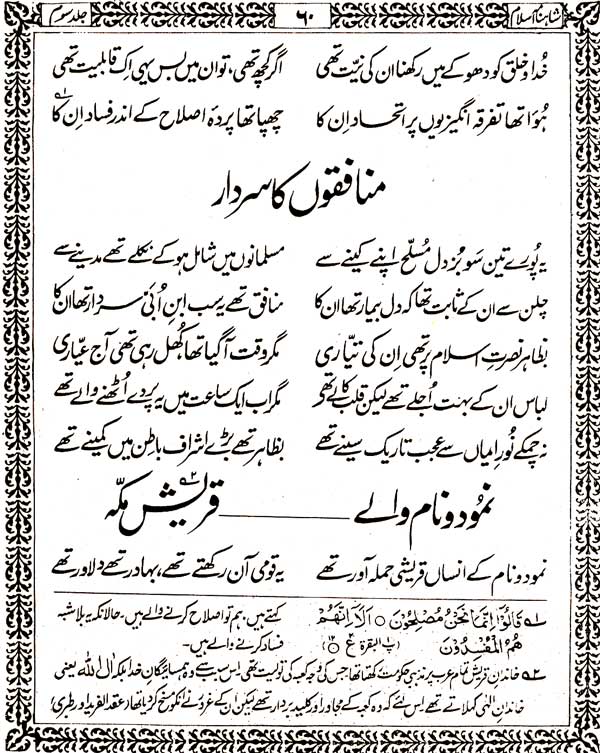 جلد سوم ۶۰ شاہنامہ اسلام
خُدا و خلق کو دھوکے میں رکھنا ان کی نیّت تھی اگر کچھ تھی، تو ان میں بس یہی اک قابلیت تھی
ہُوَا تھا تفرقہ انگیزیوں پر اتحاد اِن کا چھپا تھا پردۂ اصلاح کے اندر فساد اِن کا ؎۱
منافقوں کا سردار
یہ پُورے تین سو بُزدل مُسلّح اپنے کینے سے مسلمانوں میں شامل ہو کے نکلے تھے مدینے سے
چلن سے ان کے ثابت تھا کہ دل بیمار تھا ان کا منافق تھے یہ سب ابن اُبَیّ سردار تھا ان کا
بظاہر نصرتِ اسلام پر تھی اِن کی تیّاری مگر وقت آگیا تھا، کُھل رہی تھی آج عیّاری
لباس ان کے بہت اُجلے تھے لیکن قلب کالے تھے مگر اب ایک ساعت میں یہ پردے اُٹھنے والے تھے
نہ چمکے نُورِ ایماں سے عجب تاریک سینے تھے بظاہر تھے بڑے اشراف باطِن میں کمینے تھے
نمُود و نام والے ــــــــ قریشِ مکّہ ؎۲
نمود و نام کے انساں قریشی حملہ آور تھے یہ قومی آن رکھتے تھے، بہادر تھے دلاور تھے
؎۱ قَالُوْا اِنَّمَا نَحْنُ مُصْلِحُوْنَ ○ اَلَآ اِنَّهُمْ کہتے ہیں، ہم تو اصلاح کرنے والے ہیں۔ حالانکہ یہ بلاشبہ
هُمُ الْمُفْسِدُوْنَ (پ البقرہ ع) فساد کرنے والے ہیں۔
؎۲ خاندانِ قریش تمام عرب پر مذہبی حکومت رکھتا تھا، جس کی وجہ کعبہ کی تولیت تھی، اس سبب سے وہ ہمسایگانِ خدا بلکہ آل اللہ یعنی
خاندانِ الٰہی کہلاتے تھے، اس لئے کہ وہ کعبہ کے مجاور اور کلید بردار تھے لیکن ان کے غرور نے انکو مسخ کر دیا تھا (عقد الفرید اور طبری)